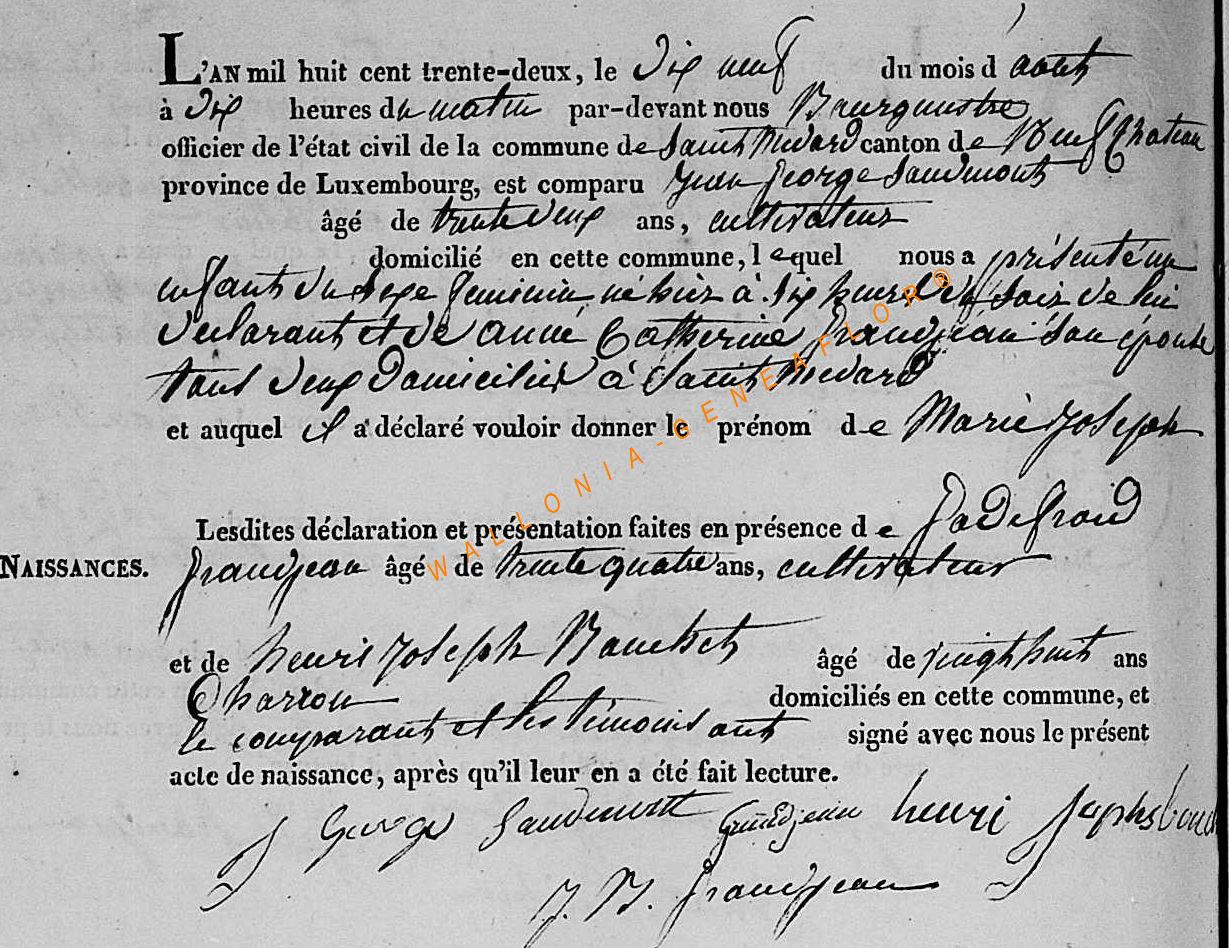 L'AN mil huit cent trente-deux, le Dix neuf du mois d'aout
à Dix heures du matin par-devant nous Bourgmestre
officier de l'état civil de la commune de Saint Medard canton de Neuf Chateau
province de Luxembourg, est comparu Jean George Saudmont
âgé de trente Deux ans, cultivateur
domicilié en cette commune, lequel nous a présenté un
enfant du Sexe feminin né hier à Six heures du Soir de lui
Declarant et de anne Catherine Grandjean Son épouse
tous Deux Domiciliés à Saint Medard
et auquel il a déclaré vouloir donner le prénom de Marie Joseph
Lesdites déclaration et présentation faites en présence de Godefroid
NAISSANCES.
Grandjean âgé de trente quatre ans, cultivateur
et de henri Joseph âgé de vingt huit ans
Charron domiciliés en cette commune, et
le comparant et les témoins ont signé avec nous le présent
acte de naissance, après qu'il leur en a été fait lecture.
J George Saudmont Grandjean henri
J. B. Grandjean
WALLONIA-GENEAFLOR®